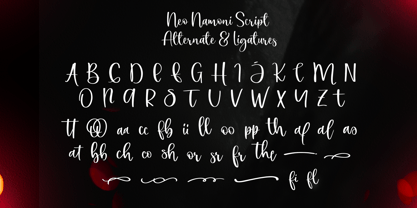 Neo Namoni Script
Alternate & ligatures
A B C D E F G H I J K L M N
O P Q R S T U V W X Y Z t
tt aa cc fb ii ll oo pp th af al as
at bb ch co sh or sr fr the
fi fl